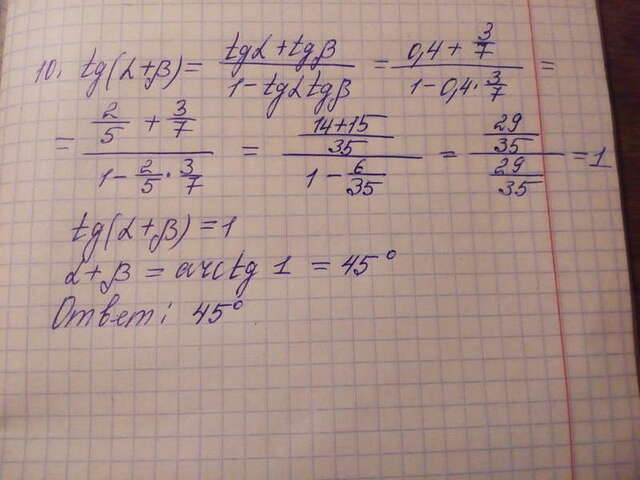 10. tg(α+β) = (tgα + tgβ)/(1 - tgα tgβ) = (0,4 + 3/7)/(1 - 0,4 · 3/7) =
= (2/5 + 3/7)/(1 - 2/5 · 3/7) = ((14+15)/35)/(1 - 6/35) = (29/35)/(29/35) = 1
tg(α+β) = 1
α+β = arctg 1 = 45°
Ответ: 45°